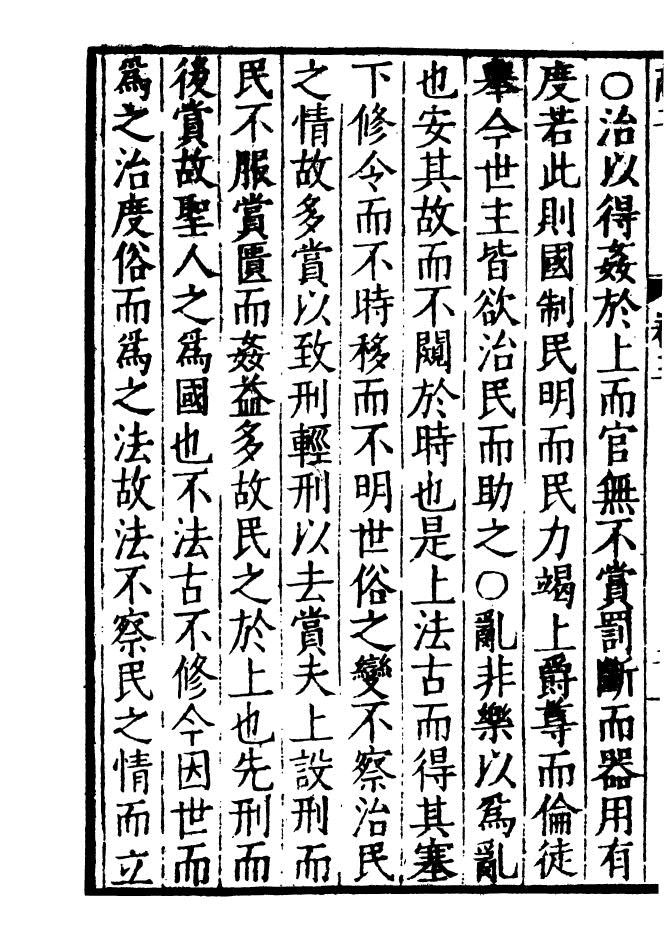 ○治以得姦於上而官無不賞罰斷而器用有
度若此則國制民明而民力竭上爵尊而倫徒
舉今世主皆欲治民而助之○亂非樂以爲亂
也安其故而不闚於時也是上法古而得其塞
下修令而不時移而不明世俗之變不察治民
之情故多賞以致刑輕刑以去賞夫上設刑而
民不服賞匱而姦益多故民之於上也先刑而
後賞故聖人之爲國也不法古不修今因世而
爲之治度俗而爲之法故法不察民之情而立